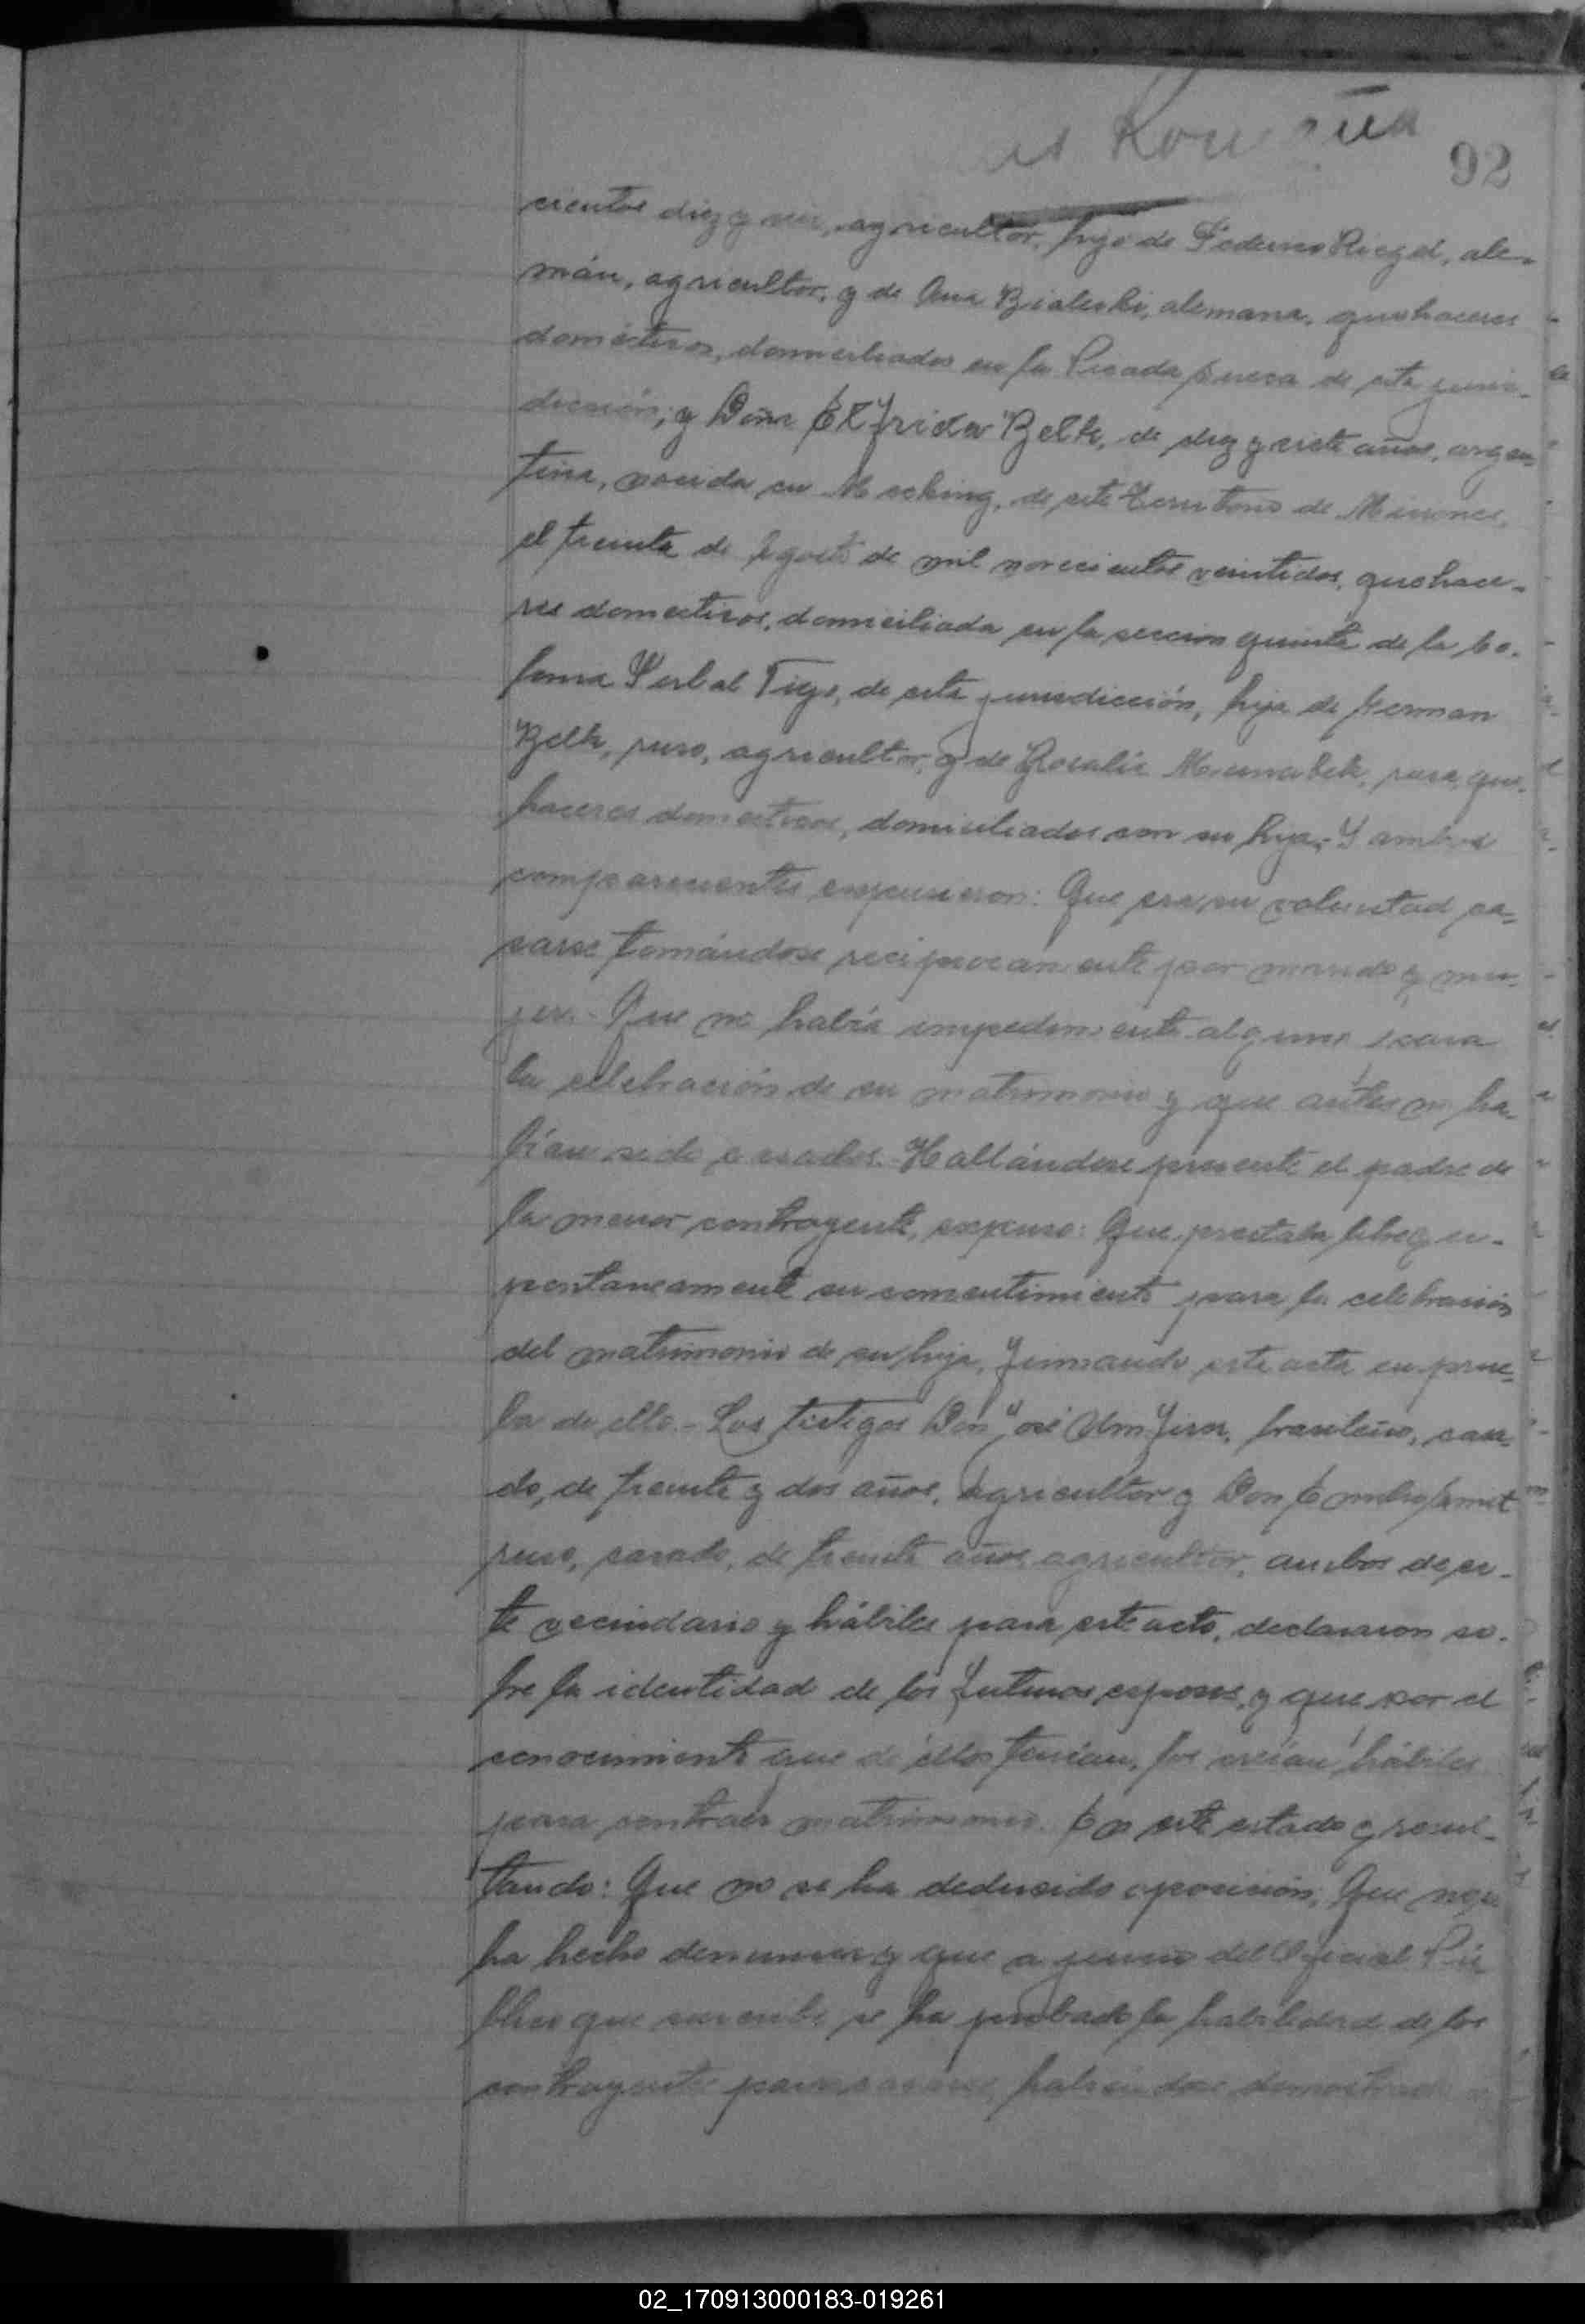 92
cientos diez y seis, agricultor, hijo de Federico Riegel, ale-
mán, agricultor, y de Ana Bialeski, alemana, quehaceres
domésticos, domiciliados en la Picada Sueca de esta juris-
dicción; y Doña Elfrida Belk, de diez y siete años, argen-
tina, nacida en Mecking, de este Territorio de Misiones,
el treinta de Agosto de mil novecientos veintidos, quehace-
res domesticos, domiciliada en la seccion quinta de la Co-
lonia Yerbal Viejo, de esta jurisdicción, hija de German
Belk, ruso, agricultor, y de Rosalia, rusa, que-
haceres domesticos, domiciliados con su hija.- Y ambos
comparecientes expusieron: Que era su voluntad ca-
sarse tomándose reciprocamente por marido y mu-
jer.- Que no había impedimento alguno para
la celebración de su matrimonio y que antes no ha-
bían sido casados. Hallándose presente el padre de
la menor contrayente, expuso: Que prestaba libre y es-
pontaneamente su consentimiento para la celebracion
del matrimonio de su hija, firmando este acta en prue-
ba de ello.- Los testigos Don José, brasileño, casa-
do, de treinta y dos años, agricultor y Don Emilio
ruso, casado, de treinta años, agricultor, ambos de es-
te vecindario y hábiles para este acto, declararon so-
bre la identidad de los futuros esposos, y que por el
conocimiento que de ellos tenían, los creían hábiles
para contraer matrimonio. En este estado y resul-
tando: Que no se ha deducido oposicion; Que no se
ha hecho denuncia y que a juicio del Oficial Pú-
blico que suscribe, se ha probado la habilidad de los
contrayentes para casarse, habiendose demostrado
02_170913000183-019261